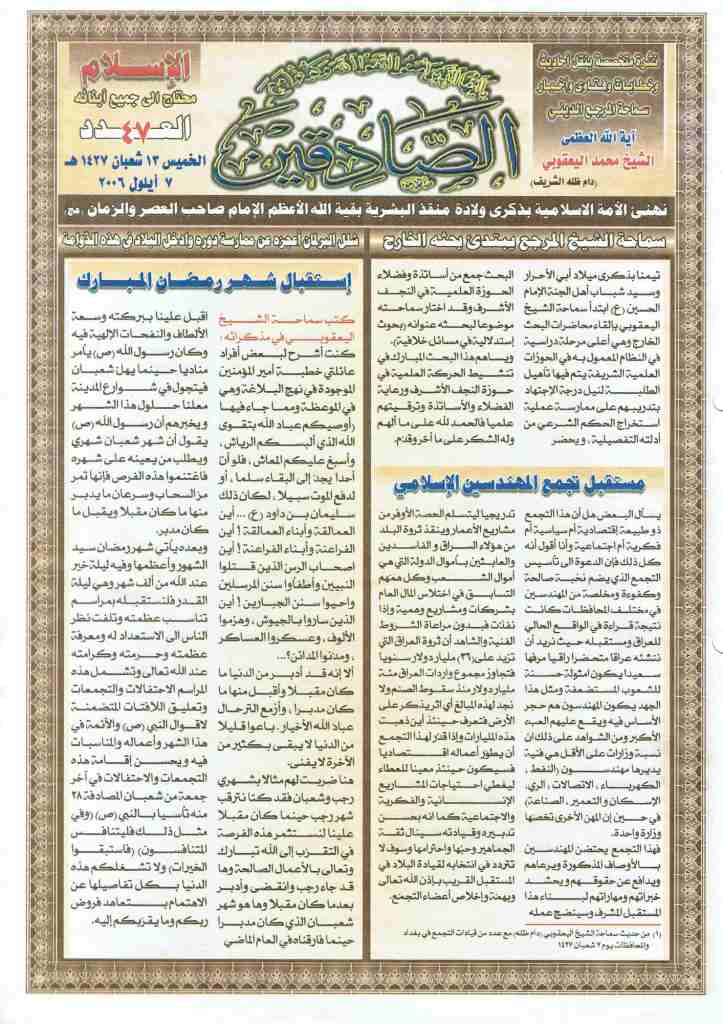 نشرة متخصصة بنقل أحاديث
وخطابات وفتاوى وأخبار
سماحة المرجع الديني
آية الله العظمى
الشيخ محمد اليعقوبي
(دام ظله الشريف)
الصادقين
الإسلام
محتاج الى جميع أبنائه
العدد
٤٧
الخميس ١٣ شعبان ١٤٢٧ هـ
٧ أيلول ٢٠٠٦
نهنئ الأمة الاسلامية بذكرى ولادة منقذ البشرية بقية الله الأعظم الإمام صاحب العصر والزمان
سماحة الشيخ المرجع يبتدئ بحثه الخارج
تيمنا بذكرى ميلاد أبي الأحرار
وسيد شباب أهل الجنة الإمام
الحسين (ع) ابتدأ سماحة الشيخ
اليعقوبي بالقاء محاضرات البحث
الخارج وهي أعلى مرحلة دراسية
في النظام المعمول به في الحوزات
العلمية الشريفة يتم فيها تأهيل
الطلبة لنيل درجة الإجتهاد
بتدريبهم على ممارسة عملية
استخراج الحكم الشرعي من
أدلته التفصيلية ، ويحضر
البحث جمع من أساتذة وفضلاء
الحوزة العلمية في النجف
الأشرف وقد اختار سماحته
موضوعا لبحثه عنوانه (بحوث
إستدلالية في مسائل خلافية).
ويساهم هذا البحث المبارك في
تنشيط الحركة العلمية في
حوزة النجف الأشرف ورعاية
الفضلاء والأساتذة وترقيتهم
علميا فالحمد لله على ما ألهم
وله الشكر على ما أخر وقدم.
مستقبل تجمع المهندسين الإسلامي
يسأل البعض هل أن هذا التجمع
ذو طبيعة إقتصادية أم سياسية أم
فكرية أم اجتماعية وأنا أقول أنه
كل ذلك فإن الدعوة الى تأسيس
التجمع الذي يضم نخبة صالحة
وكفوءة ومخلصة من المهندسين
في مختلف المحافظات كانت
نتيجة قراءة في الواقع الحالي
للعراق ومستقبله حيث نريد أن
ننشئه عراقا متحضرا راقيا مرفها
سعيدا يكون أمثولة حسنة
للشعوب المستضعفة ومثل هذا
الجهد يكون المهندسون هم حجر
الأساس فيه ويقع عليهم العبء
الأكبر ومن الشواهد على ذلك إن
نسبة وزارات على الأقل هي فنية
يديرها مهندسون (النفط ،
الكهرباء ، الاتصالات ، الري،
الإسكان و التعمير ، الصناعة)
في حين إن المهن الأخرى تخصها
وزارة واحدة.
فهذا التجمع يحتضن المهندسين
بالأوصاف المذكورة ويرعاهم
ويدافع عن حقوقهم ويحشد
خبراتهم ومهاراتهم لبناء هذا
المستقبل المشرف وسينضج عمله
تدريجيا ليتسلم الحصة الأوفر من
مشاريع الأعمار وينقذ ثروة البلد
من هؤلاء السراق و الفاسدين
والعابثين بأموال الدولة التي هي
أموال الشعب وكل همهم
التسابق في اختلاس المال العام
بشركات ومشاريع وهمية وإذا
نفذت فبدون مراعاة الشروط
الفنية والشاهد أن ثروة العراق التي
تزيد على (٣٦) مليار دولار سنويا
فتجاوز مجموع واردات العراق مئة
مليار دولار منذ سقوط الصنم ولا
نجد لهذه المبالغ أي اثر يذكر على
الأرض فتعرف حينئذ أين ذهبت
هذه المليارات وإذا قدر لهذا التجمع
أن يطور أعماله اقتصاديا
فسيكون حينئذ معينا للعطاء
ليغطي احتياجات المشاريع
الإنسانية والفكرية
والاجتماعية كما انه بحسن
تدبيره وقيادته سينال ثقة
الجماهير وحبها واحترامها وسوف لا
تتردد في انتخابه لقيادة البلاد في
المستقبل القريب بإذن الله تعالى
وبهمة وإخلاص أعضاء التجمع.
(١) من حديث سماحة الشيخ اليعقوبي (دام ظله) مع عدد من قيادات التجمع في بغداد
والمحافظات يوم ٢ شعبان ١٤٢٧
شلل البرلمان أعجزه عن ممارسة دوره وأدخل البلاد في هذه الدوامة
إستقبال شهر رمضان المبارك
كتب سماحة الشيخ
اليعقوبي في مذكراته :
كنت أشرح لبعض أفراد
عائلتي خطبة أمير المؤمنين
الموجودة في نهج البلاغة وهي
في الموعظة ومما جاء فيها
(أوصيكم عباد الله بتقوى
الله الذي ألبسكم الرياش ،
وأسبغ عليكم المعاش ، فلو أن
أحدا يجد إلى البقاء سلما ، أو
لدفع الموت سبيلا ، لكان ذلك
سليمان بن داود (ع) ... أين
العمالقة وأبناء العمالقة ! أين
الفراعنة وأبناء الفراعنة ! أين
اصحاب الرس الذين قتلوا
النبيين وأطفأوا سنن المرسلين
واحيوا سنن الجبارين ! أين
الذين ساروا بالجيوش ، وهزموا
الألوف ، وعسكروا العساكر
، ومدنوا المدائن؟...
ألا إنه قد أدبر من الدنيا ما
كان مقبلا وأقبل منها ما
كان مدبرا ، وأزمع الترحال
عباد الله الأخيار . باعوا قليلا
من الدنيا لا يبقى بكثير من
الآخرة لا يفنى.
هنا ضربت لهم مثالا بشهري
رجب وشعبان فقد كنا نترقب
شهر رجب حينما كان مقبلا
علينا لنستثمر هذه الفرصة
في التقرب إلى الله تبارك
وتعالى بالأعمال الصالحة وها
قد جاء رجب وانقضى وأدبر
بعدما كان مقبلا وها هو شهر
شعبان الذي كان مدبرا
حينما فارقناه في العام الماضي
اقبل علينا ببركته وسعة
الألطاف والنفحات الإلهية فيه
وكان رسول الله (ص) يأمر
مناديا حينما يهل شعبان
فيتجول في شوارع المدينة
معلنا حلول هذا الشهر
ويخبرهم أن رسول الله (ص)
يقول أن شهر شعبان شهري
ويطلب من يعينه على شهره
فاغتنموا هذه الفرص فإنها تمر
مر السحاب وسرعان ما يدبر
منها ما كان مقبلا ويقبل ما
كان مدبر.
وبعده يأتي شهر رمضان سيد
الشهور وأعظمها وفيه ليلة خير
عند الله من ألف شهر وهي ليلة
القدر فلنستقبله بمراسم
تناسب عظمته وتلفت نظر
الناس الى الاستعداد له ومعرفة
عظمته وحرمته وكرامته
عند الله تعالى وتشمل هذه
المراسم الاحتفالات والتجمعات
وتعليق اللافتات المتضمنة
لاقوال النبي (ص) والأئمة في
هذا الشهر وأعماله والمناسبات
فيه ويحسن إقامة هذه
التجمعات والاحتفالات في آخر
جمعة من شعبان المصادفة ٢٨
منه تأسيا بالنبي (ص) (وفي
مثل ذلك فليتنافس
المتنافسون) (فاستبقوا
الخيرات) ولا تشغلكم هذه
الدنيا بكل تفاصيلها عن
الاهتمام بتعاهد فروض
ربكم وما يقربكم إليه.